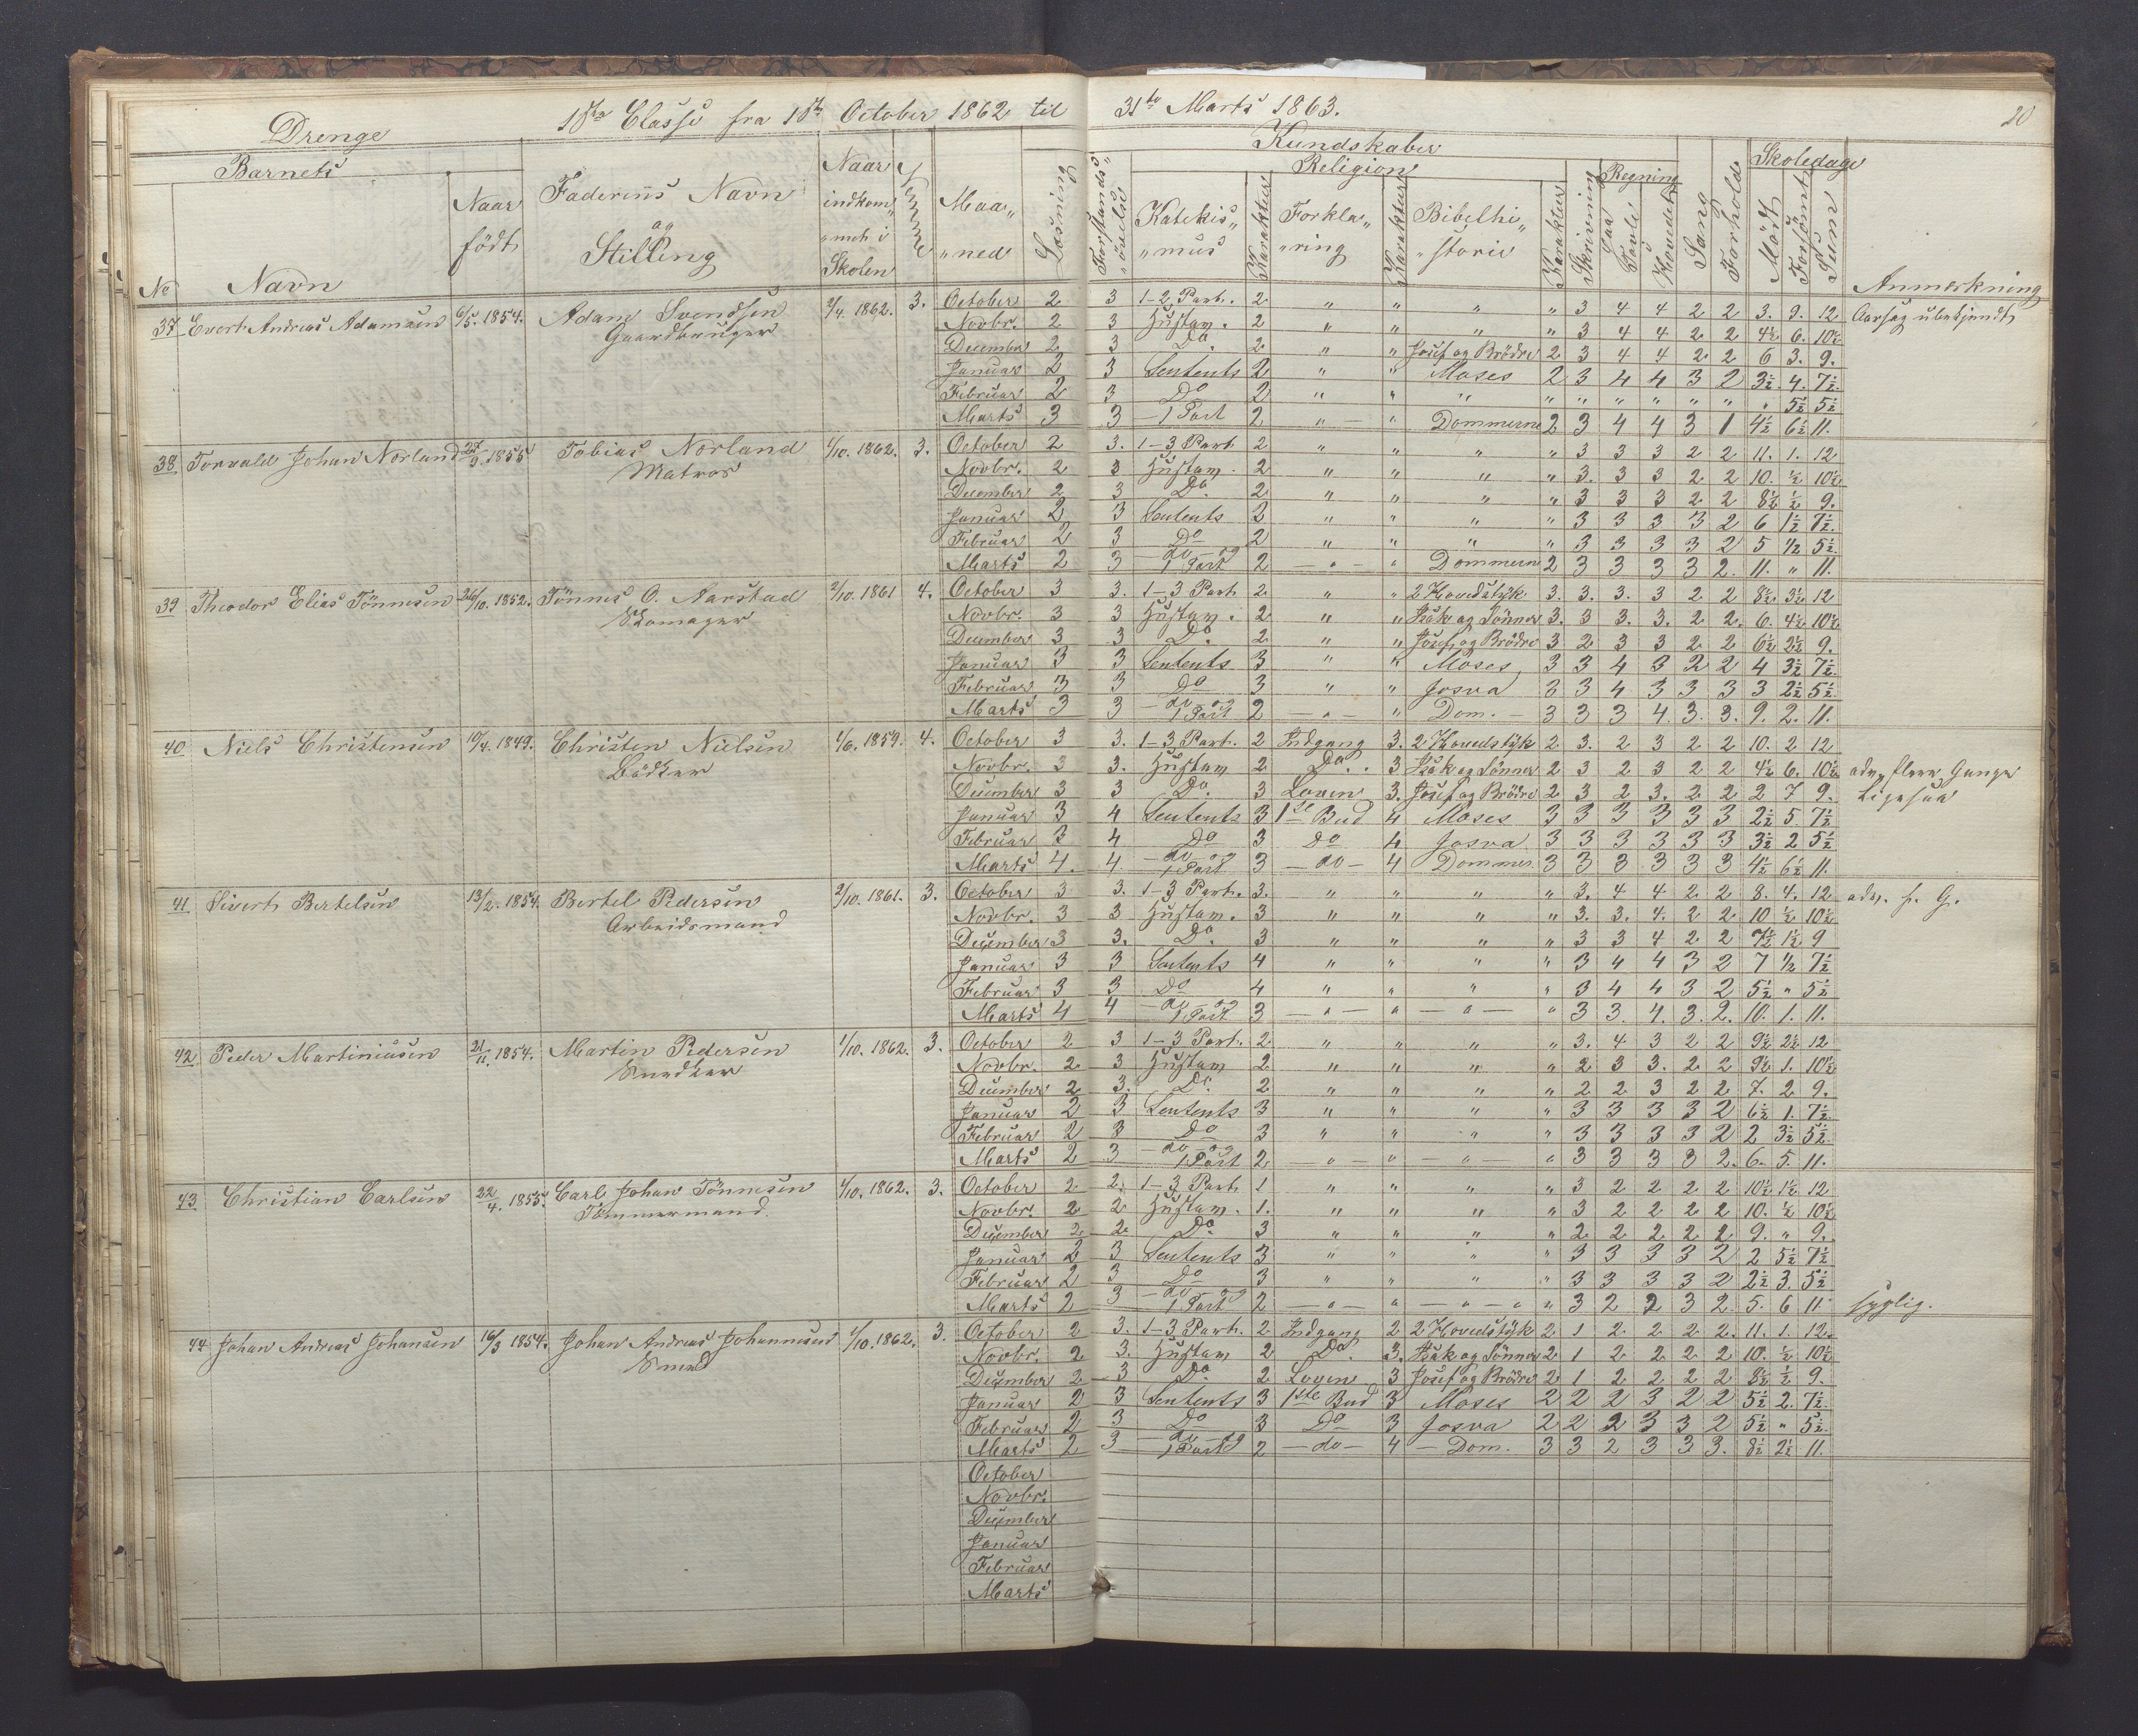 Drenge 1ste Classe fra 1ste October 1862 til 31te Marts 1863. 20
Barnets Faderens Navn og Stilling Naar indkommen i Skolen Evne Maaned Kundskaber Skoledage
No Navn Naar födt Læsning Forstandsövelse Religion Skrivning Regning Sang Forhold Mödt Forsömt Sum Anmærkning
Katekismus Karakter Forklaring Karakter Bibelhistorie Karakter Paa Tavle Hovedet
37 Evert Andreas Adamsen 6/5. 1854. Adam Svendsen 2/4. 1862. 3. October 2 3 1-2 Part. 2 " " " " 3 4 4 2 2 3. 9. 12 Aarsag ubekjendt
Gaardbruger Novbr. 2 3 Hustav. 2 " " " " 3 4 4 2 2 4½ 6. 10½
December 2 3 Do. 2 " " Josef og Brödre 2 3 4 4 2 2 6 3. 9.
Januar 2 3 Sentents 2 " " Moses 2 3 4 4 3 2 3½ 4. 7½
Februar 2 3 Do 2 " " " " " " " " " " 5½ 5½
Marts 3 3 - 1 Part 2 " - " Dommerne 2 3 4 4 3 1 4½ 6½ 11.
38 Torvald Johan Norland 27/9. 1855 Tobias Norland 1/10. 1862. 3. October 2 3. 1-3 Part 2 " " " " 3 3 3 2 2 11. 1. 12
Matros Novbr. 2 3 Hustav. 2 " " " " 3. 3 3 2 2 10. ½ 10½
December 2 3 Do. 2 " " " " 3 3 3 2 2 8½ ½ 9.
Januar 2 3 Sentents 2 " " " " 3 3 3 3 2 6 1½ 7½
Februar 2 3 Do 2 " " " " 3 3 3 3 2 5 ½ 5½
Marts 2 3 - do - og 1 Part 2 - " - " Dommerne 2 3 3 3 3 2. 11. " 11.
39 Theodor Elias Tönnesen 26/10. 1852. Tönnes O. Aarstad 2/10. 1861 4. October 3 3. 1-3 Part 2. " " 2 Hovedstÿk 3. 3. 3. 3 2 2 8½ 3½ 12
Skomager Novbr. 3 3 Hustav. 2 " " Isak og Sönner 3. 3 3. 3. 2 2. 6. 4½ 10½
December 3 3 Do. 2 " " Josef og Brödre 3 2 3 3 2 2 6½ 2½ 9.
Januar 3 3 Sentents 3 " " Moses 3 3 4 3 2 2 4 3½ 7½
Februar 3 3 Do 3 " " Josva 3 3 4 3 3 3 3 2½ 5½
Marts 3 3 - do - og 1 Part 2 - " - " Dom. - 3 3 3 4. 3. 3. 9. 2. 11.
40 Niels Christensen 10/4. 1849. Christen Nielsen 1/6. 1859. 4. October 3 3. 1-3 Part. 2 Indgang 3. 2 Hovedstÿk 2 3. 2 3 2 2 10. 2 12
Bödker Novbr. 3 3. Hustav 2 Do. 3 Isak og Sönner 2 3 2 3 2 2 4½ 6. 10½ adv. flere Gange
December 3 3 Do. 3 Loven 3. Josef og Brödre 2 3 2 3. 2 2 2 7 9. Ligesaa
Januar 3 4 Sentents 3 1ste Bud 4 Moses 3 3 3 3 3 3 2½ 5 7½
Februar 3 4 Do 3 Do 4 Josva 3 3 3 3 3 3 3½ 2 5½
Marts 4. 4 - do - og 1 Part 3 - do - 4 Dommer. 3 3 3 3 3 3 4½ 6½ 11.
41 Sivert Bertelsen 13/2. 1854. Bertel Pedersen 2/10. 1861. 3. October 3 3. 1-3 Part. 3. " " " " 3. 4 4 2 2 8. 4. 12 adv. f. G.
Arbeidsmand Novbr. 3 3 Hustav. 3 " " " " 3. 3. 4. 2 2 10 ½ 10½
December 3 3. Do. 3 " " " " 3 3 4 2 2 7½ 1½ 9
Januar 3 3 Sentents 4 " " " " 3 4 4 3 2 7 ½ 7½
Februar 3 3 Do 4 " " " " 3 4 4 3 2 5½ " 5½
Marts 4 4 - do - og 1 Part 3 - " - " - " - " 3 3. 4. 3. 2. 10. 1. 11.
42 Peder Martiniusen 21/11. 1854. Martin Pedersen 1/10. 1862. 3. October 2 3 1-3 Part. 2 " " " " 3. 4 3 2 2 9½ 2½ 12
Snedker Novbr. 2 3 Hustav 2 " " " " 2 3 3. 2 2 9½ 1. 10½
December 2 3. Do. 2 " " " " 2 2 3 2 2 7. 2 9.
Januar 2 3 Sentents 3 " " " " 3 3 3 3 2 6½ 1. 7½
Februar 2 3 Do 3 " " " " 3 3 3 3 2 2 3½ 5½
Marts 2 3 - do - og 1 Part 2 - " - " - " - " 3 3 3 3 2. 6. 5. 11.
43 Christian Carlsen 22/4. 1855. Carl Johan Tönnesen 1/10. 1862. 3. October 2 2. 1-3 Part 1 " " " " 3 2 2 2 2 10½ 1½ 12
Tömmermand. Novbr. 2 2 Hustav. 1. " " " " 3 2 2 2 2 10. ½ 10½
December 2 2. Do 3 " " " " 2 2 2 2 2 9. " 9.
Januar 2 3 Sentents 3 " " " " 3 3 3 3 2 2 5½ 7½
Februar 2 3 Do 3 " " " " 3 3 3 3 2 2½ 3. 5½
Marts 2 3 - do - og 1 Part 2 - " - " - " - " " 3 2 2 3 2. 5. 6 11 syglig.
44 Johan Andreas Johansen 16/3 1854. Johan Andreas Johannesen 1/10. 1862. 3. October 2 3. 1-3 Part. 2 Indgang 2 2 Hovedstÿk 2 1 2 2 2 2. 11. 1. 12.
Smed Novbr. 2 3. Hustav 2 Do. 3. Isak og Sönner 2 1 2 2 2 2 10. ½ 10½
December 2 3 Do 2 Loven 3 Josef og Brödre 2 1 2 2 2 2 8½ ½ 9.
Januar 2 3 Sentents 3 1ste Bud 3 Moses 2 2 2 3 2 2 5½ 2. 7½
Februar 2 3 Do 3 Do 3 Josva 2 2 2 3 3 2 5½ " 5½
Marts 2 3 - do - og 1 Part 2 - do - 4 - Dom. 3 3 2 3 3 3. 8½ 2½ 11.
October
Novbr.
December
Januar
Februar
Marts